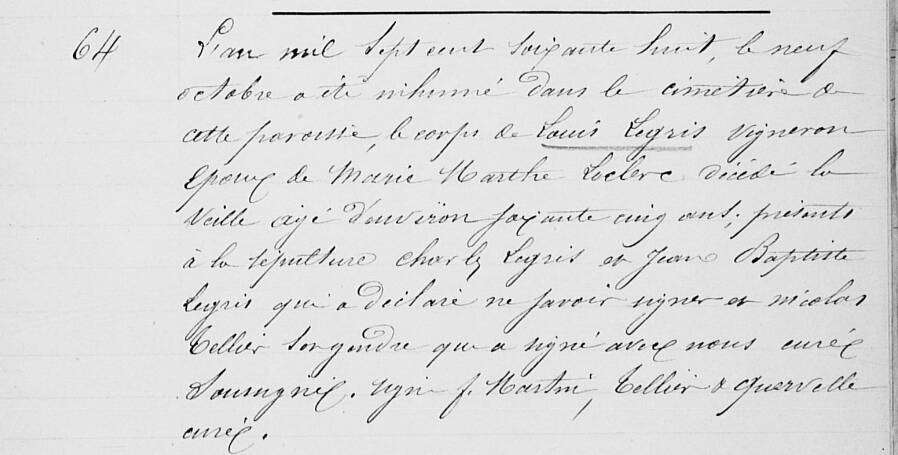 64 L'an mil sept cent soixante huit, le neuf
octobre a été inhumé dans le cimetière de
cette paroisse, le corps de Louis Legris vigneron
époux de Marie Marthe Leclerc décédé la
veille agé d'environ soixante cinq ans; présents
à la sépulture Charles Legris et Jean Baptiste
Legris qui a déclaré ne savoir signer et Nicolas
Tellier son gendre qui a signé avec nous curé
soussigné. signé f. Martin, Tellier &
curé.